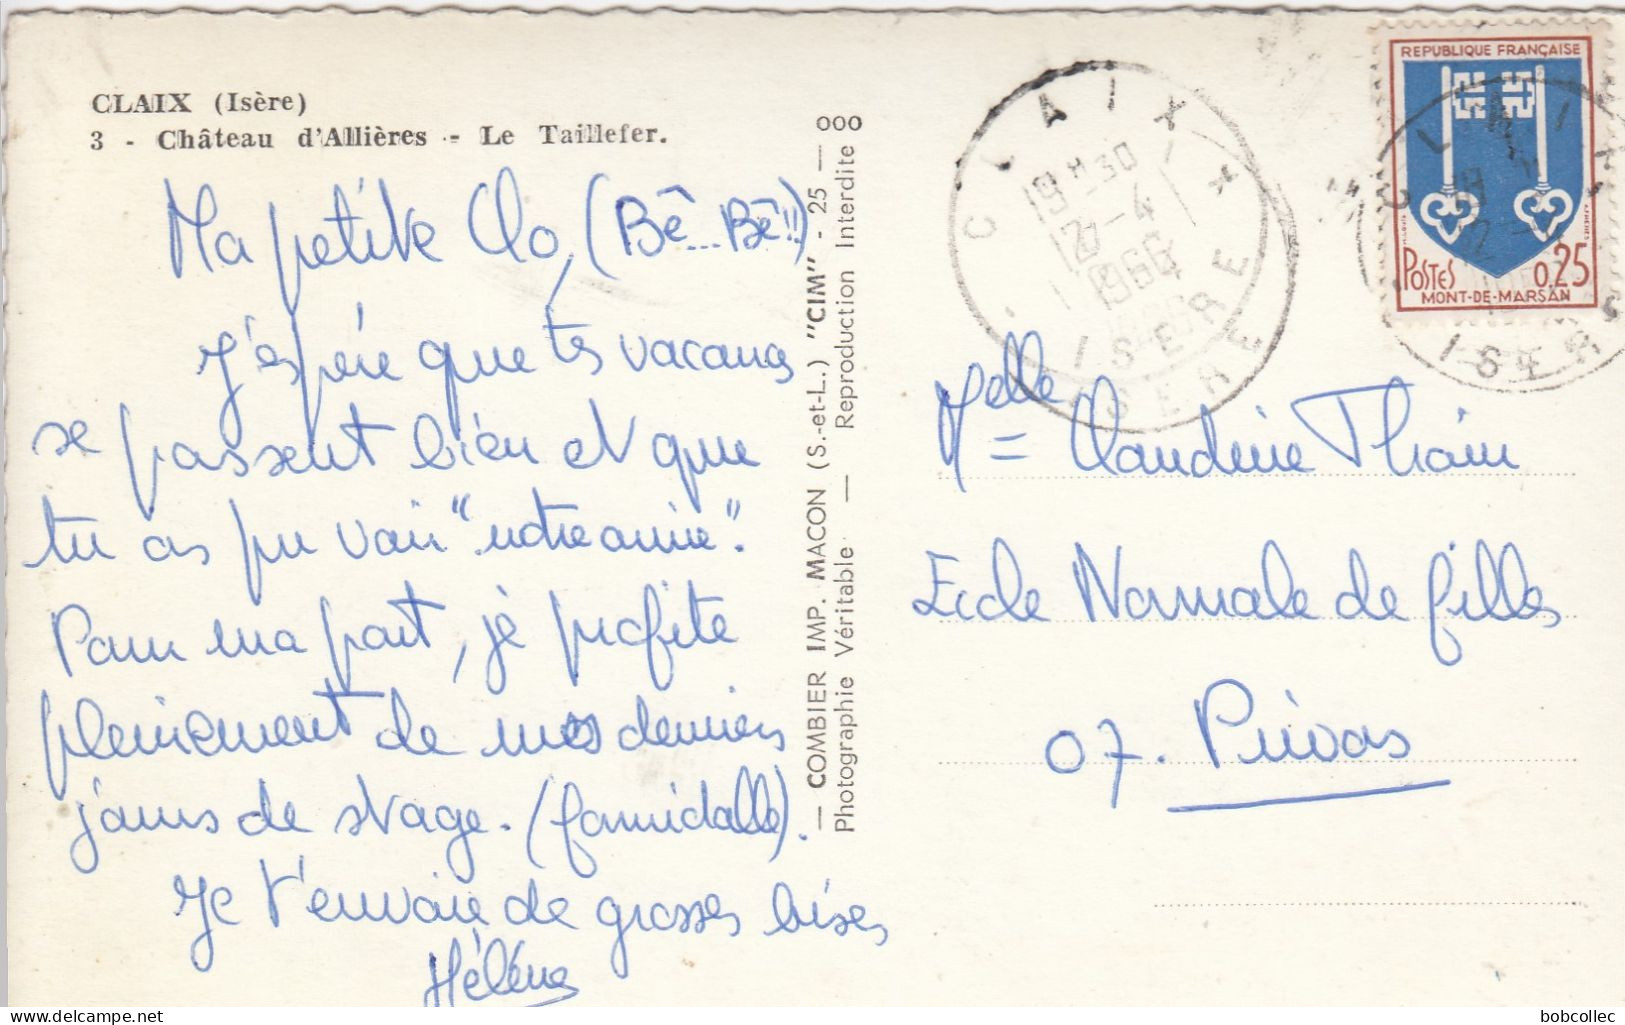 CLAIX (Isère)
3 - Château d'Allières - Le Taillefer.
Ma petite Clo, (Bê... Bê!!)
J'espère que tes vacances
se passent bien et que
tu as pu voir "notre amie".
Pour ma part, je profite
pleinement de mes derniers
jours de stage. (formidable).
Je t'envoie de grosses bises
Hélène
— COMBIER IMP. MACON (S.-et-L.) "CIM" - 25 — 000
Photographie Véritable — Reproduction Interdite
CLAIX
9H30
2-4
1966
ISERE
REPUBLIQUE FRANÇAISE
POSTES 0,25
MONT-DE-MARSAN
CLAIX
ISERE
Melle Claudine Thoin
Ecole Normale de filles
07. Privas
www.delcampe.net
bobcollec